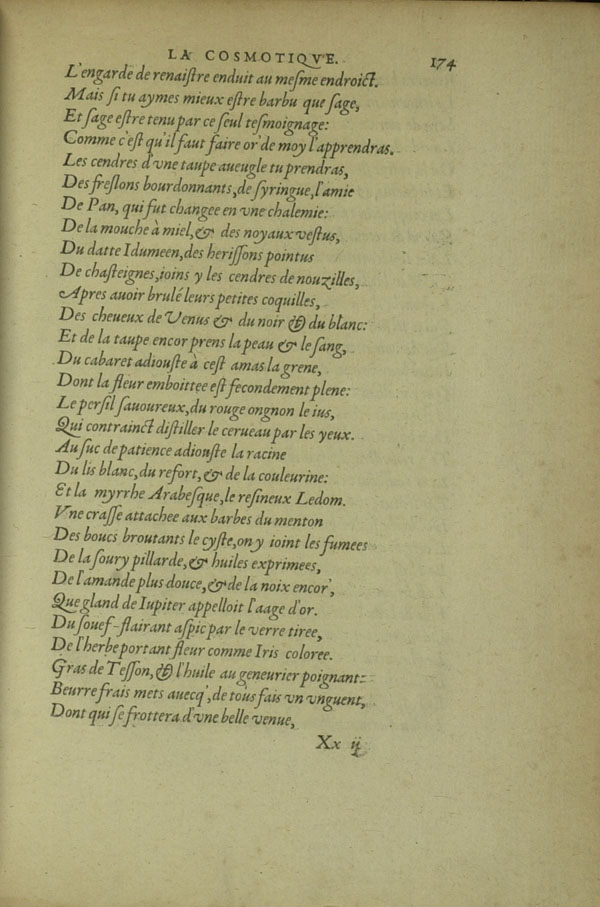 LA COSMOTIQVE. 174
L'engarde de renaiſtre enduit au meſme endroict.
Mais ſi tu aymes mieux eſtre barbu que ſage,
Et ſage eſtre tenu par ce ſeul teſmoignage:
Comme c'eſt qu'il faut faire or' de moy l'apprendras.
Les cendres d'vne taupe aueugle tu prendras,
Des freſlons bourdonnants, de ſyringue, l'amie
De Pan, qui fut changee en vne chalemie:
De la mouche à miel, & des noyaux veſtus,
Du datte Idumeen, des heriſſons pointus
De chaſteignes, ioins y les cendres de nouzilles,
Apres auoir brulé leurs petites coquilles,
Des cheueux de Venus & du noir & du blanc:
Et de la taupe encor prens la peau & le ſang,
Du cabaret adiouſte à ceſt amas la grene,
Dont la fleur emboittee eſt fecondement plene:
Le perſil ſauoureux, du rouge ongnon le ius,
Qui contrainct diſtiller le cerueau par les yeux.
Au ſuc de patience adiouſte la racine
Du lis blanc, du refort, & de la couleurine:
Et la myrrhe Arabeſque, le reſineux Ledom.
Vne craſſe attachee aux barbes du menton
Des boucs broutants le cyſte, on y ioint les fumees
De la ſoury pillarde, & huiles exprimees,
De l'amande plus douce, & de la noix encor',
Que gland de Iupiter appelloit l'aage d'or.
Du ſouef-flairant aſpic par le verre tiree,
De l'herbe portant fleur comme Iris coloree.
Gras de Teſſon, & l'huile au geneurier poignant:
Beurre frais mets auecq', de tous fais vn vnguent,
Dont qui ſe frottera d'vne belle venue,
Xx ij